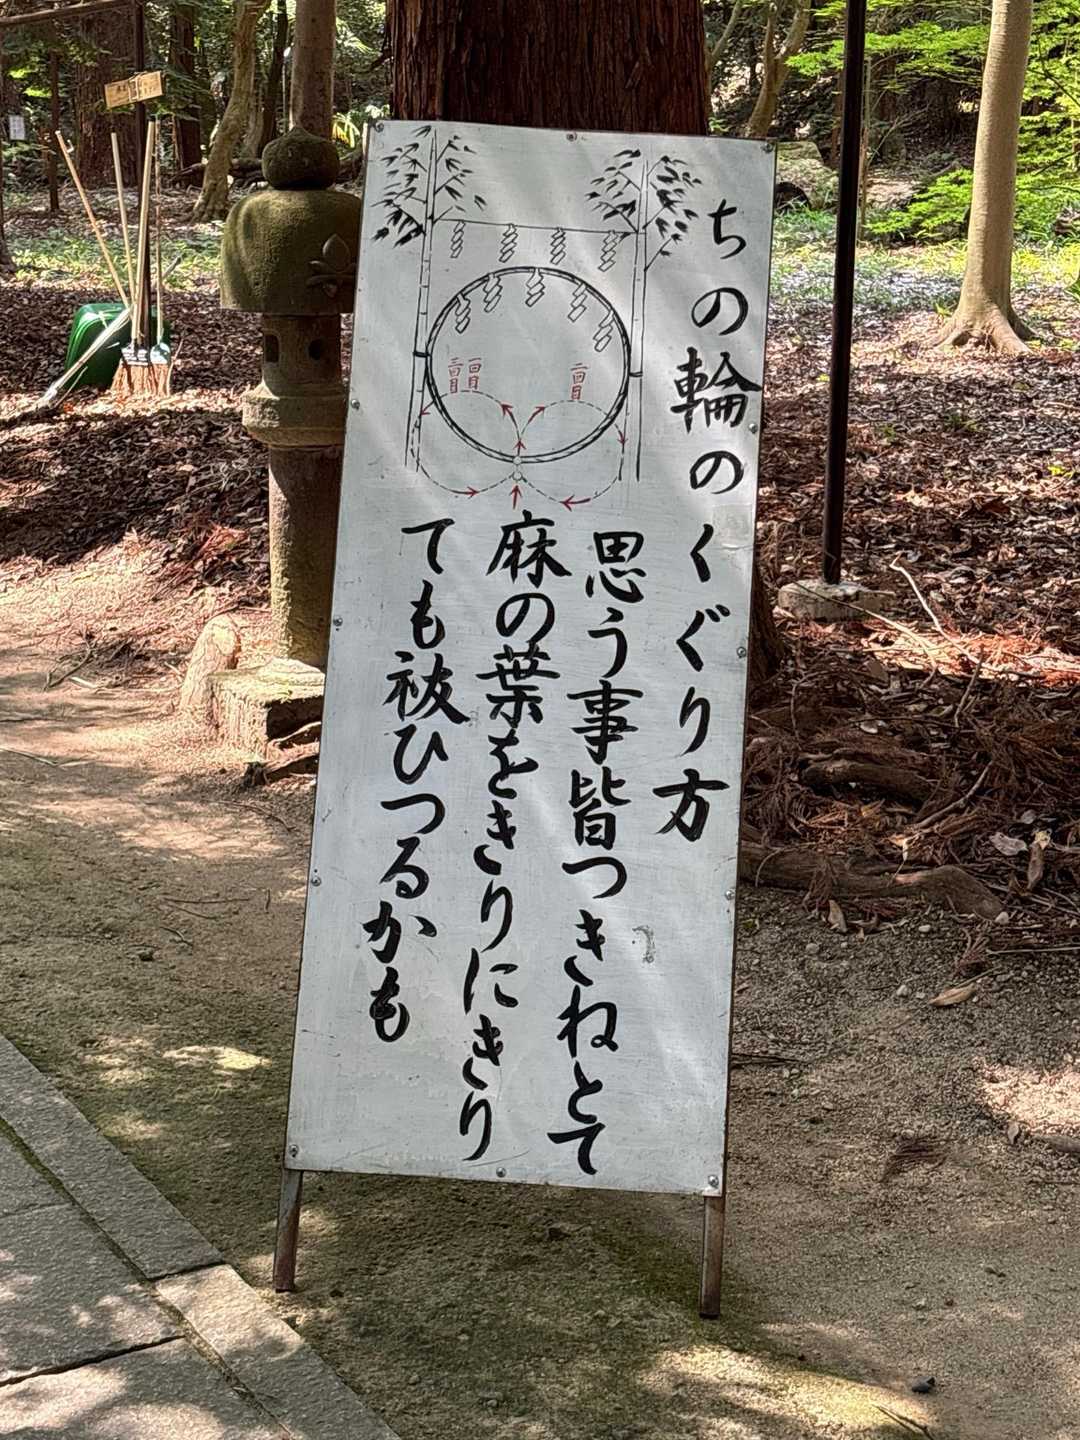 ちの輪のくぐり方
思う事皆つきねとて
麻の葉をきりにきり
ても祓ひつるかも
一回目
三回目
二回目